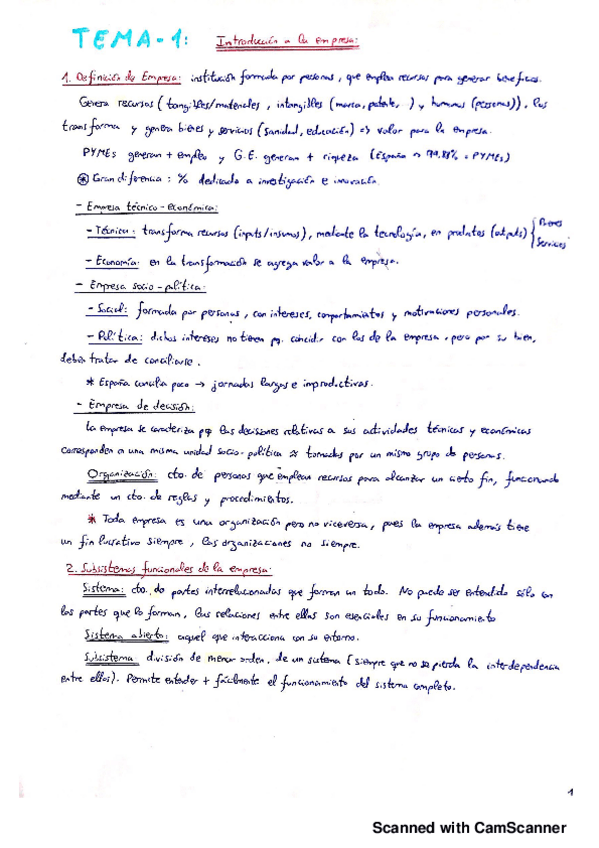 TEMA-1: Introducción a la empresa:
1. Definición de Empresa: institución formada por personas, que emplea recursos para generar beneficios.
Genera recursos (tangibles/materiales, intangibles (marca, patente, ) y humanos (personas)), los
transforma y genera bienes y servicios (sanidad, educación) => valor para la empresa.
PYMEs generan + empleo y G.E. generan + riqueza (España → 99,88% = PYMEs)
* Gran diferencia: % dedicado a investigación e innovación.
- Empresa técnico-económica:
- Técnica: transforma recursos (inputs/insumos), mediante la tecnología, en productos (outputs) { Bienes
Servicios
- Economía: en la transformación se agrega valor a la empresa.
- Empresa socio-política:
- Social: formada por personas, con intereses, comportamientos y motivaciones personales.
- Política: dichos intereses no tienen pq. coincidir con los de la empresa, pero por su bien,
debía tratar de conciliarse.
* España concilia poco → jornadas largas e improductivas.
- Empresa de decisión:
La empresa se caracteriza pq las decisiones relativas a sus actividades técnicas y económicas
corresponden a una misma unidad socio-política ≈ tomadas por un mismo grupo de personas.
Organización: cto. de personas que emplean recursos para alcanzar un cierto fin, funcionando
mediante un cto. de reglas y procedimientos.
* Toda empresa es una organización pero no viceversa, pues la empresa además tiene
un fin lucrativo siempre, las organizaciones no siempre.
2. Subsistemas funcionales de la empresa:
Sistema: cto. de partes interrelacionadas que forman un todo. No puede ser entendido sólo con
las partes que lo forman, las relaciones entre ellas son esenciales en su funcionamiento
Sistema abierto: aquel que interacciona con su entorno.
Subsistema división de menor orden, de un sistema (siempre que no se pierda la interdependencia
entre ellos). Permite entender + fácilmente el funcionamiento del sistema completo.
1
Scanned with CamScanner